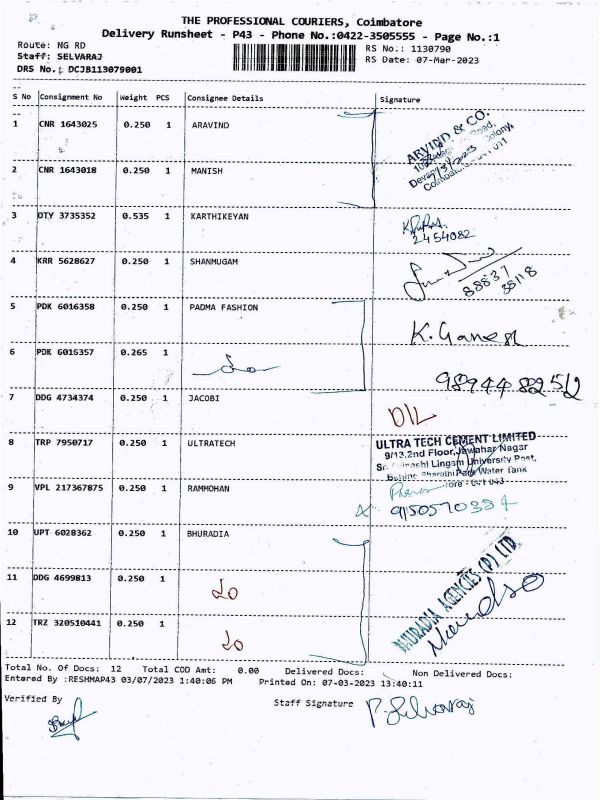 THE PROFESSIONAL COURIERS, Coimbatore
Delivery Runsheet - P43 - Phone No.:0422-3505555 - Page No.:1
Route: NG RD RS No.: 1130790
Staff: SELVARAJ RS Date: 07-Mar-2023
DRS No.: DCJB113079001
S No Consignment No Weight PCS Consignee Details Signature
1 CNR 1643025 0.250 1 ARAVIND
ARVIND & CO.
2 CNR 1643018 0.250 1 MANISH
3 OTY 3735352 0.535 1 KARTHIKEYAN
2454082
4 KRR 5628627 0.250 1 SHANMUGAM
88837
38118
5 PDK 6016358 0.250 1 PADMA FASHION
K. Ganesh
6 PDK 6016357 0.265 1
98944 82512
7 DDG 4734374 0.250 1 JACOBI
DIL
8 TRP 7950717 0.250 1 ULTRATECH
ULTRA TECH CEMENT LIMITED
9/13,2nd Floor,Jawahar Nagar
Lingam University Post,
Bharathi Park Water Tank
9 VPL 217367875 0.250 1 RAMMOHAN
9150570384
10 UPT 6028362 0.250 1 BHURADIA
BHURADIA AGENCIES (P) LTD
11 DDG 4699813 0.250 1
12 TRZ 320510441 0.250 1
Total No. Of Docs: 12 Total COD Amt: 0.00 Delivered Docs: Non Delivered Docs:
Entered By :RESHMAP43 03/07/2023 1:40:06 PM Printed On: 07-03-2023 13:40:11
Verified By Staff Signature P. Selvaraj